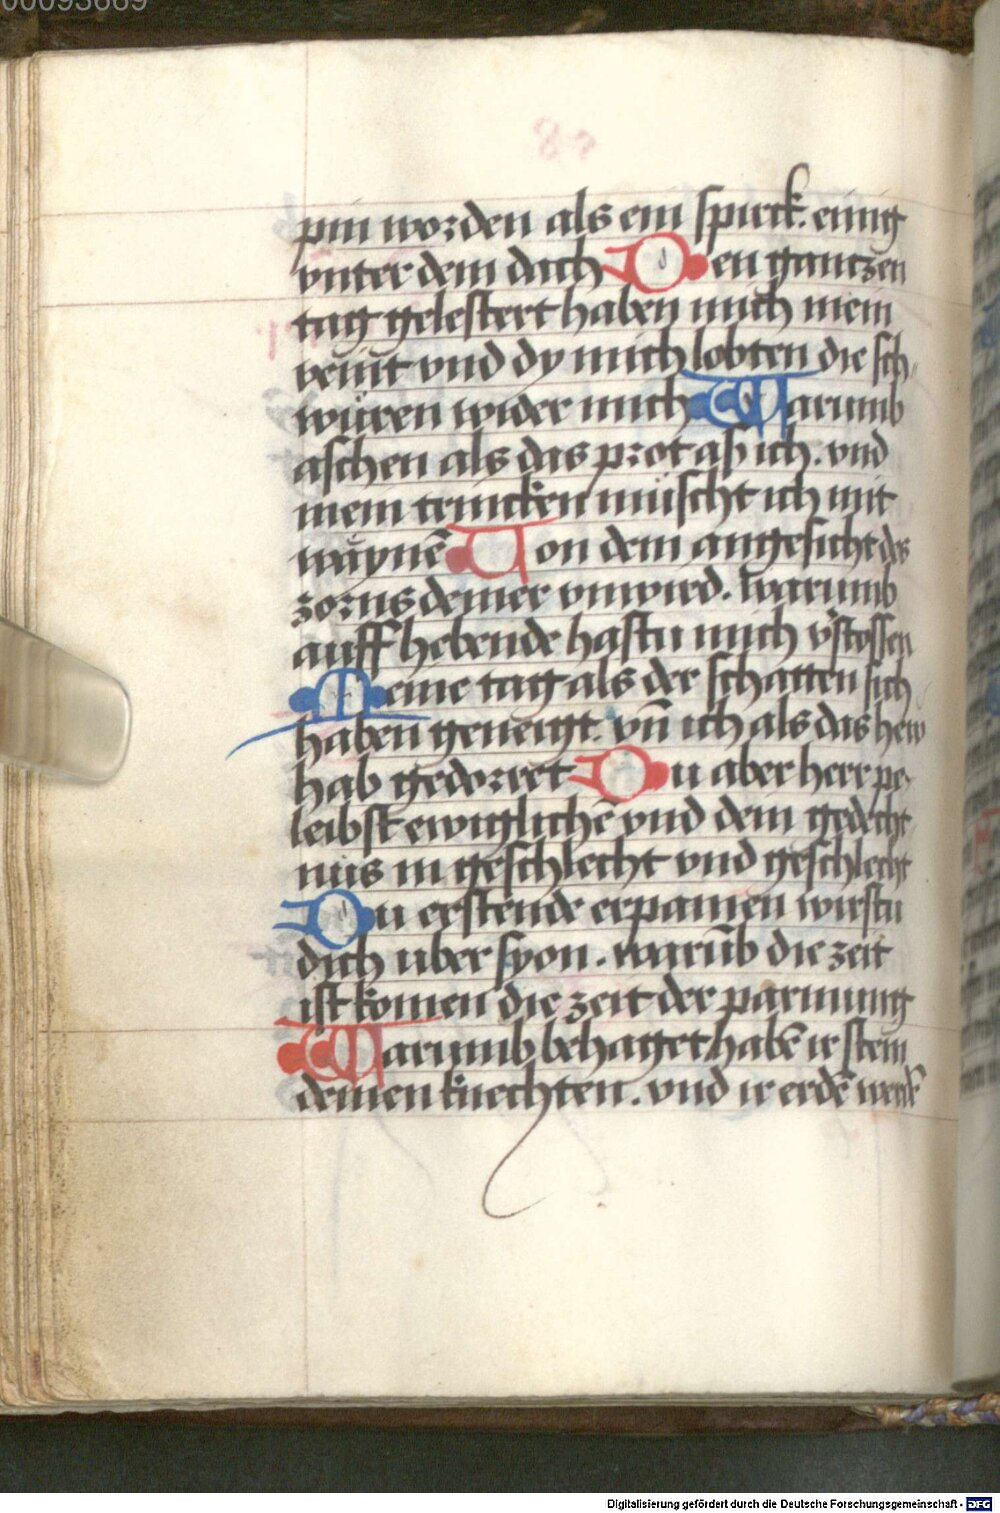 00093669
pin worden als ein spirck. einig
vnter dem dach Den gantzen
tag gelestert haben mich mein
veint vnd dy mich lobten die sch
wuren wider mich Warumb
aschen als das prot aß ich. vnd
mein trincken müscht ich mit
waynē Von dem angesicht des
zorns deiner vnwird. warumb
auff hebende hastu mich v̓stossen
Meine tag als der schatten sich
haben geneigt. vn̄ ich als das hew
hab gedorret Du aber herr pe
leibst ewiglichē vnd dein gedecht
nus in geschlecht vnd geschlecht
Du erstende erparmen wirstu
dich uber syon. warūb die zeit
ist komen die zeit der parmung
Warumb behaget habē ir stein
deinen knechten. vnd ir erdē
Digitalisierung gefördert durch die Deutsche Forschungsgemeinschaft - DFG